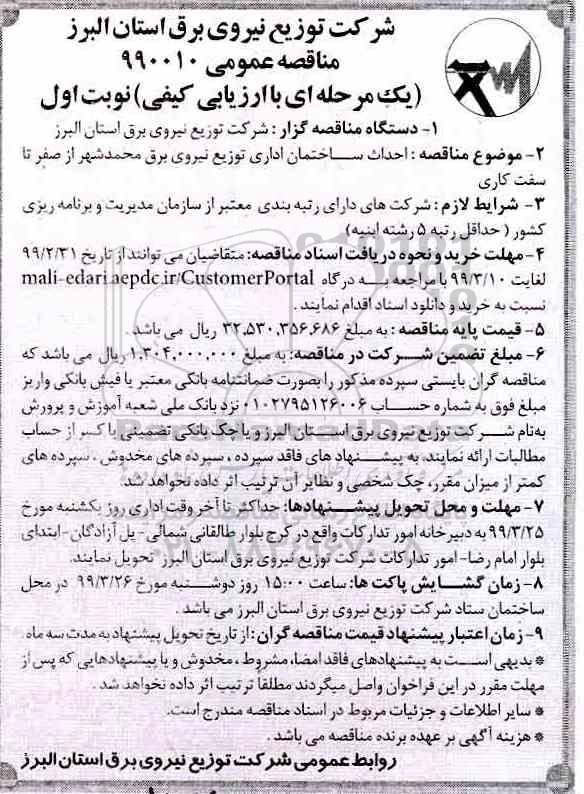 شرکت توزیع نیروی برق استان البرز
مناقصه عمومی ۹۹۰۰۱۰
(یک مرحله ای با ارزیابی کیفی) نوبت اول
۱- دستگاه مناقصه گزار : شرکت توزیع نیروی برق استان البرز
۲- موضوع مناقصه : احداث ساختمان اداری توزیع نیروی برق محمدشهر از صفر تا
سفت کاری
۳- شرایط لازم : شرکت های دارای رتبه بندی معتبر از سازمان مدیریت و برنامه ریزی
کشور ( حداقل رتبه ۵ رشته ابنیه)
۴- مهلت خرید و نحوه دریافت اسناد مناقصه: متقاضیان می توانند از تاریخ ۹۹/۲/۳۱
لغایت ۹۹/۳/۱۰ با مراجعه به درگاه mali-edari.aepdc.ir/CustomerPortal
نسبت به خرید و دانلود اسناد اقدام نمایند .
۵- قیمت پایه مناقصه : به مبلغ ۳۲,۵۳۰,۳۵۶,۶۸۶ ریال می باشد .
۶- مبلغ تضمین شرکت در مناقصه: به مبلغ ۱,۳۰۴,۰۰۰,۰۰۰ ریال می باشد که
مناقصه گران بایستی سپرده مذکور را بصورت ضمانتنامه بانکی معتبر یا فیش بانکی واریز
مبلغ فوق به شماره حساب ۰۱۰۲۷۹۵۱۲۶۰۰۶ نزد بانک ملی شعبه آموزش و پرورش
به‌نام شرکت توزیع نیروی برق استان البرز و یا چک بانکی تضمینی یا کسر از حساب
مطالبات ارائه نمایند. به پیشنهاد های فاقد سپرده ، سپرده های مخدوش ، سپرده های
کمتر از میزان مقرر، چک شخصی و نظایر آن ترتیب اثر داده نخواهد شد.
۷- مهلت و محل تحویل پیشنهادها: حداکثر تا آخر وقت اداری روز یکشنبه مورخ
۹۹/۳/۲۵ به دبیرخانه امور تدارکات واقع در کرج بلوار طالقانی شمالی - پل آزادگان -ابتدای
بلوار امام رضا- امور تدارکات شرکت توزیع نیروی برق استان البرز تحویل نمایند.
۸- زمان گشایش پاکت ها: ساعت ۱۵:۰۰ روز دوشنبه مورخ ۹۹/۳/۲۶ در محل
ساختمان ستاد شرکت توزیع نیروی برق استان البرز می باشد .
۹- زمان اعتبار پیشنهاد قیمت مناقصه گران : از تاریخ تحویل پیشنهاد به مدت سه ماه .
* بدیهی است به پیشنهادهای فاقد امضا، مشروط ، مخدوش و یا پیشنهادهایی که پس از
مهلت مقرر در این فراخوان واصل میگردند مطلقا ترتیب اثر داده نخواهد شد .
* سایر اطلاعات و جزئیات مربوط در اسناد مناقصه مندرج است.
* هزینه آگهی بر عهده برنده مناقصه می باشد .
روابط عمومی شرکت توزیع نیروی برق استان البرز